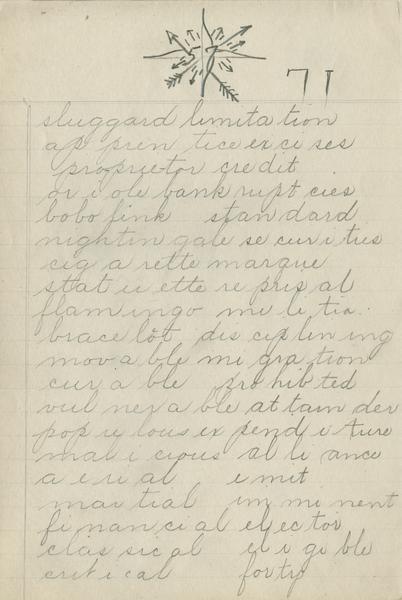 71
sluggard limitation
ap pren tice ex ci ses
proprietor credit
or i ole bank rupt cies
bobo fink standard
nightin gale se cur i ties
cig a rette marque
stat u ette re pris al
flamingo mi li tia
brace lot dis ciplin ing
mov a ble mi gra tion
cur a ble pro hib ted
vul ner a ble at tain der
pop u lous ex pend i ture
mal i cious al li ance
a e ri al emit
martial im mi nent
fi nan ci al ejector
clas sic al el i gi ble
crit i cal forty